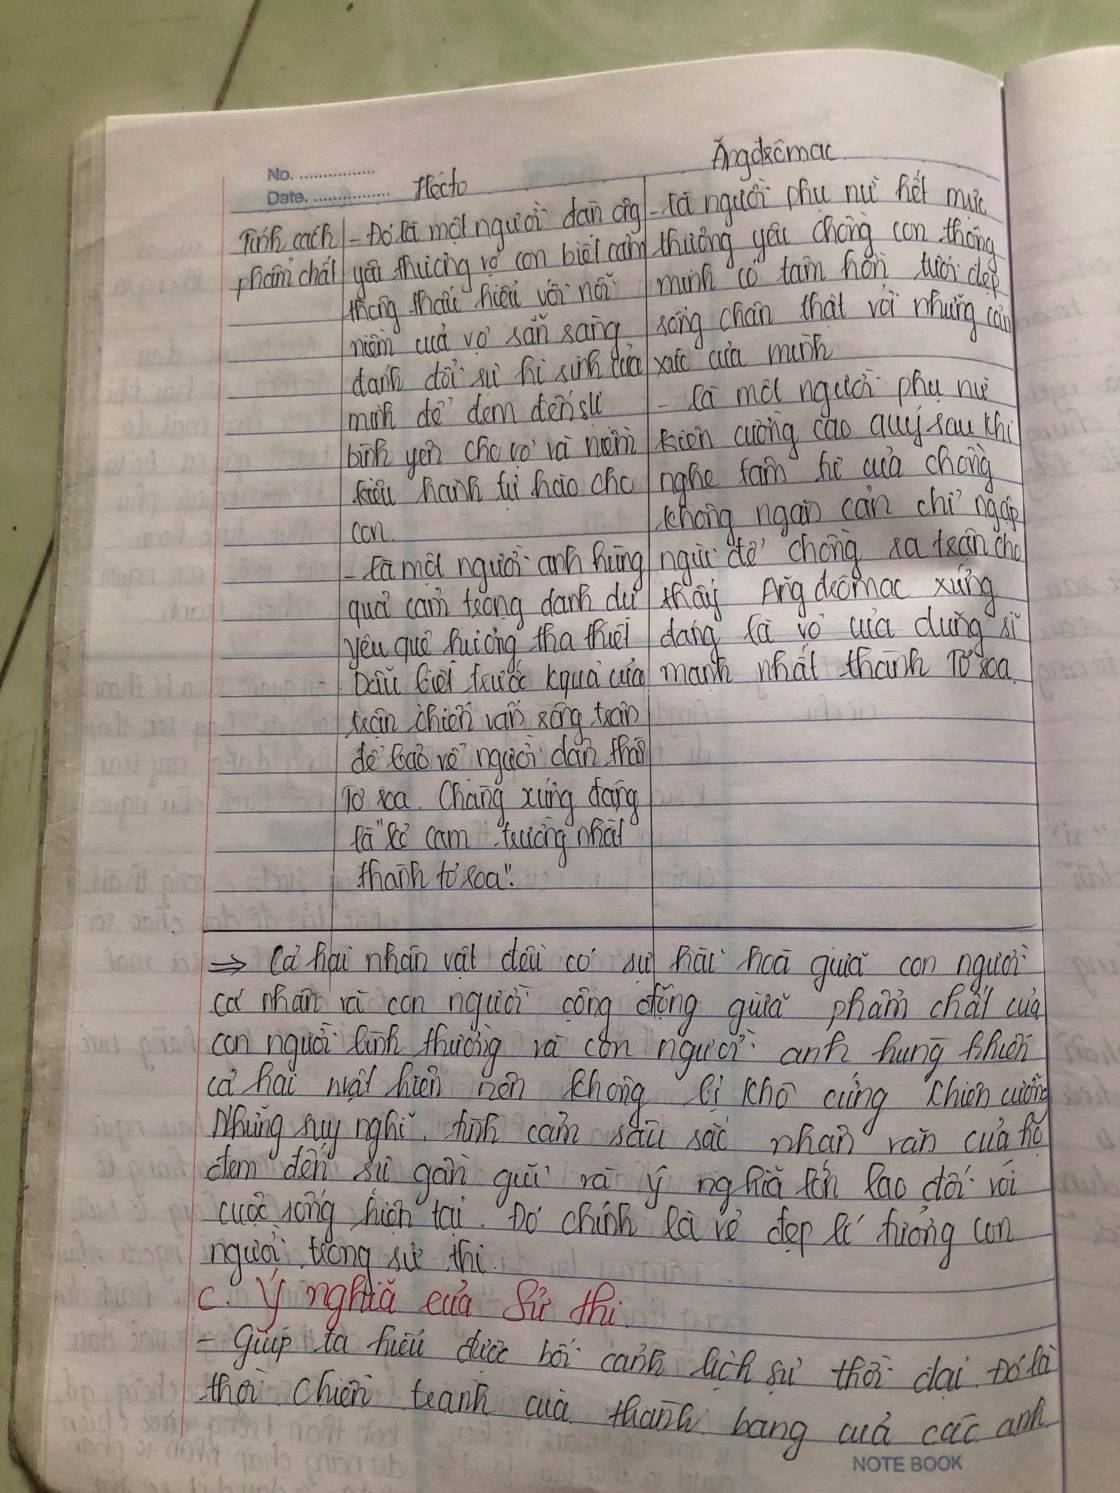 No. ............
Date. ............
Hécto
Ăngđrômac
Tính cách
phẩm chất
- Đó là một người đàn ông
yêu thương vợ con biết cảm
thông thấu hiểu với nỗi
niềm của vợ sẵn sàng
đánh đổi sự hi sinh của
mình để đem đến sự
bình yên cho vợ và niềm
kiêu hãnh tự hào cho
con.
- Là một người anh hùng
quả cảm trọng danh dự
yêu quê hương tha thiết
Dẫu biết trước kquả của
trận chiến vẫn xông trận
để bảo vệ người dân thành
Tơ roa. Chàng xứng đáng
là "kẻ can trường nhất
thành tơ roa".
- Là người phụ nữ hết mực
thương yêu chồng con thông
minh có tâm hồn tươi đẹp
sống chân thật với những cảm
xúc của mình
- là một người phụ nữ
kiên cường cao quý sau khi
nghe tâm hi của chồng
không ngăn cản chỉ ngậm
ngùi để chồng ra trận cho
thấy Ăngđrômac xứng
đáng là vợ của dũng sĩ
mạnh nhất thành Tơ roa.
⇒ Cả hai nhân vật đều có sự hài hoà giữa con người
cá nhân và con người cộng đồng giữa phẩm chất của
con người bình thường và con người anh hùng khiến
cả hai mặt hiện nên không bị khô cứng khiên cưỡng
Những suy nghĩ, tình cảm sâu sắc nhân văn của họ
đem đến sự gần gũi và ý nghĩa lớn lao đối với
cuộc sống hiện tại. Đó chính là vẻ đẹp lí tưởng con
người trong sử thi.
c. Ý nghĩa của Sử thi.
- Giúp ta hiểu được bối cảnh lịch sử thời đại. Đó là
thời chiến tranh của thành bang của các anh
NOTE BOOK